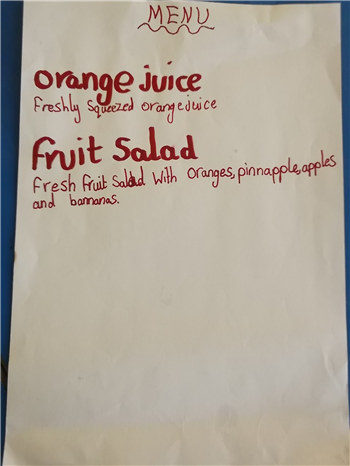 MENU
orange juice
Freshly Squeezed orange juice
Fruit Salad
Fresh fruit Salad with oranges, pinnapple, apples
and bannanas.